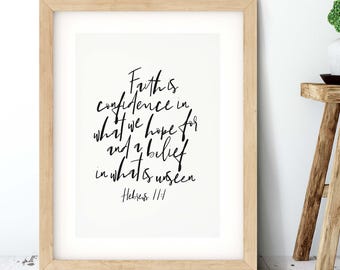 Faith is
confidence in
what we hope for
and a belief
in what is unseen
Hebrews 11:1